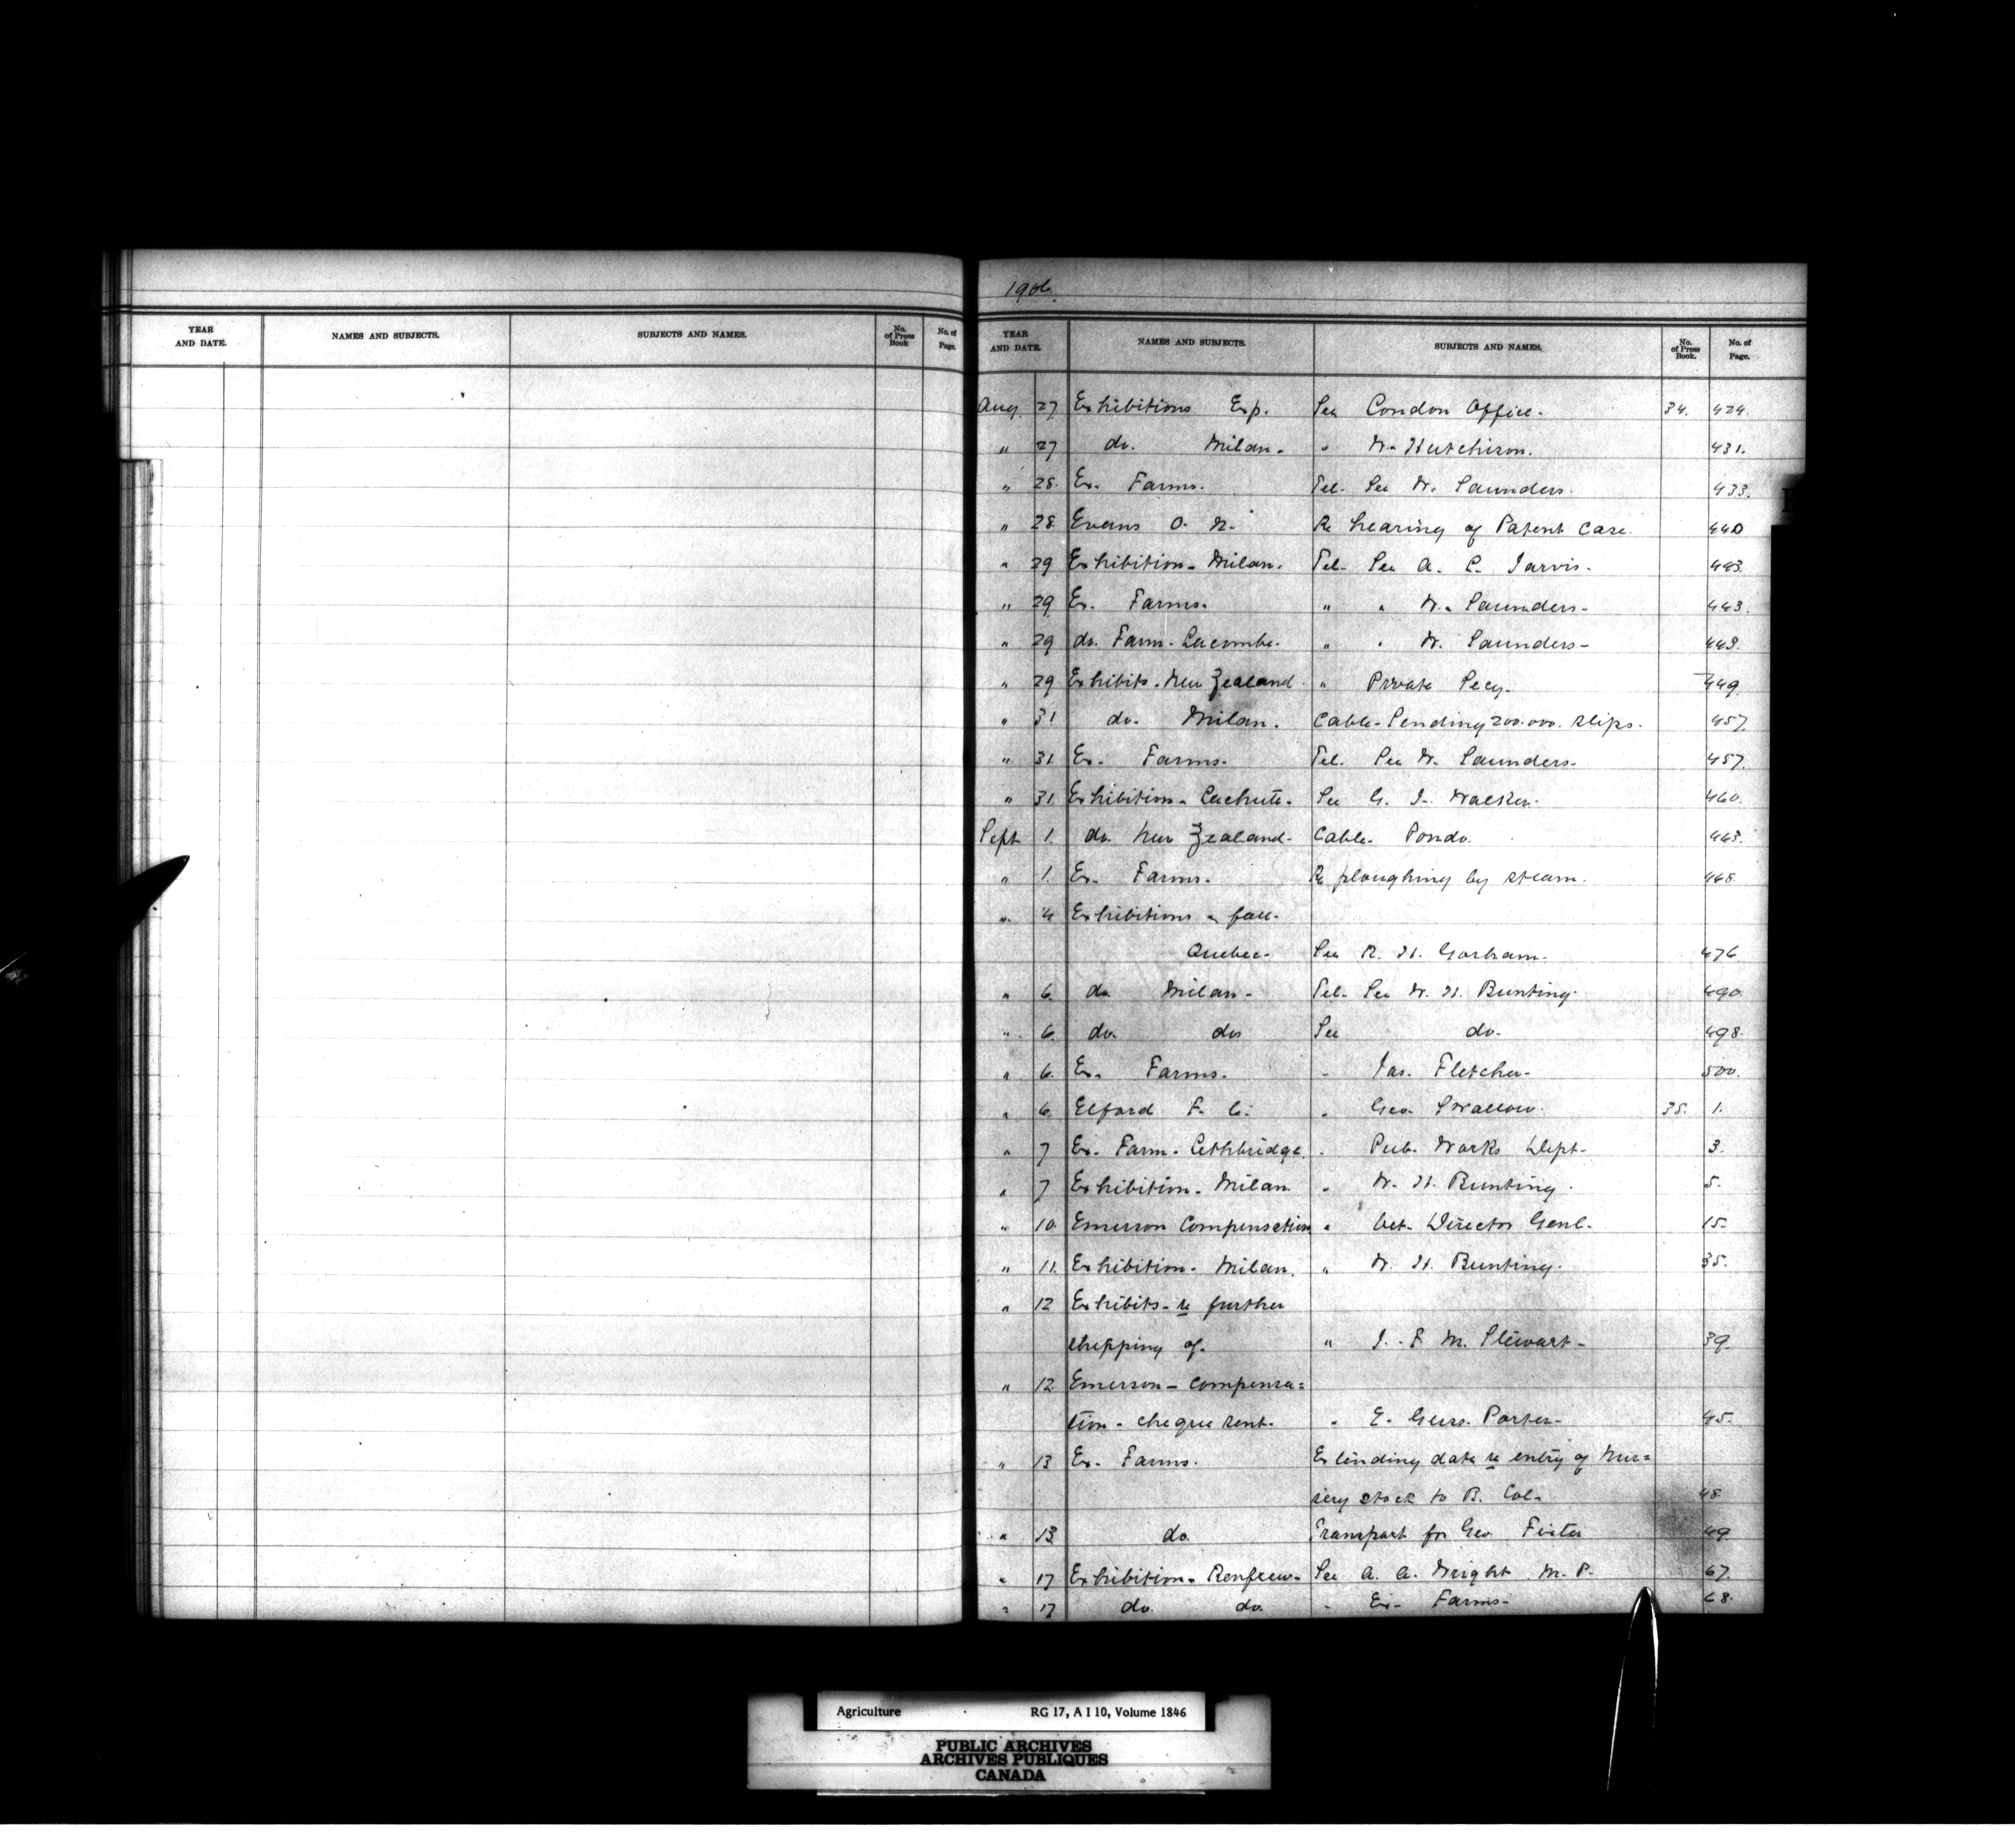 YEAR AND DATE. NAMES AND SUBJECTS. SUBJECTS AND NAMES. No. of Press Book No. of Page.
1906.
YEAR AND DATE. NAMES AND SUBJECTS. SUBJECTS AND NAMES. No. of Press Book. No. of Page.
Aug. 27 Exhibitions Exp. See London Office. 34. 424.
" 27 do. Milan. " W. Hutchison. 431.
" 28. Ex. Farms. Tel. See W. Saunders. 433.
" 28. Evans O. N. Re hearing of Patent Case. 440
" 29 Exhibition. Milan. Tel. See A. L. Jarvis. 443.
" 29. Ex. Farms. " " W. Saunders. 443.
" 29 do. Farm. Lacombe. " " W. Saunders. 443.
" 29 Exhibits. New Zealand " Private Secy. 449.
" 31 do. Milan. Cable. Sending 200.000. slips. 457.
" 31. Ex. Farms. Tel. See W. Saunders. 457.
" 31. Exhibition. Lachute. See G. J. Walker. 460.
Sept 1. do. New Zealand. Cable. Pondo. 463.
" 1. Ex. Farms. Re ploughing by steam. 468.
" 4 Exhibitions - fall.
Quebec. See R. H. Gorham. 476
" 6. do Milan. Tel. See W. H. Bunting. 490.
" 6. do. do See do. 498.
" 6. Ex. Farms. " Jas. Fletcher. 500.
" 6. Elford F. C. " Geo. Swallow. 35. 1.
" 7 Ex. Farm. Lethbridge. " Pub. Works Dept. 3.
" 7 Exhibition. Milan " W. H. Bunting. 5.
" 10. Emerson Compensation " Vet. Director Genl. 15.
" 11. Exhibition. Milan. " W. H. Bunting. 35.
" 12 Exhibits - re further
shipping of. " J. F. M. Stewart. 39.
" 12. Emerson - Compensa=
tion. cheque sent. " E. Guss. Porter. 45.
" 13 Ex. Farms. Extending date re entry of nur=
sery stock to B. Col. 48.
" 13 do. Transport for Geo 49
" 17 Exhibition. Renfrew. See A. A. Wright M. P. 67.
" 17 do. do. " Ex. Farms. 68.
Agriculture RG 17, A I 10, Volume 1846
PUBLIC ARCHIVES
ARCHIVES PUBLIQUES
CANADA